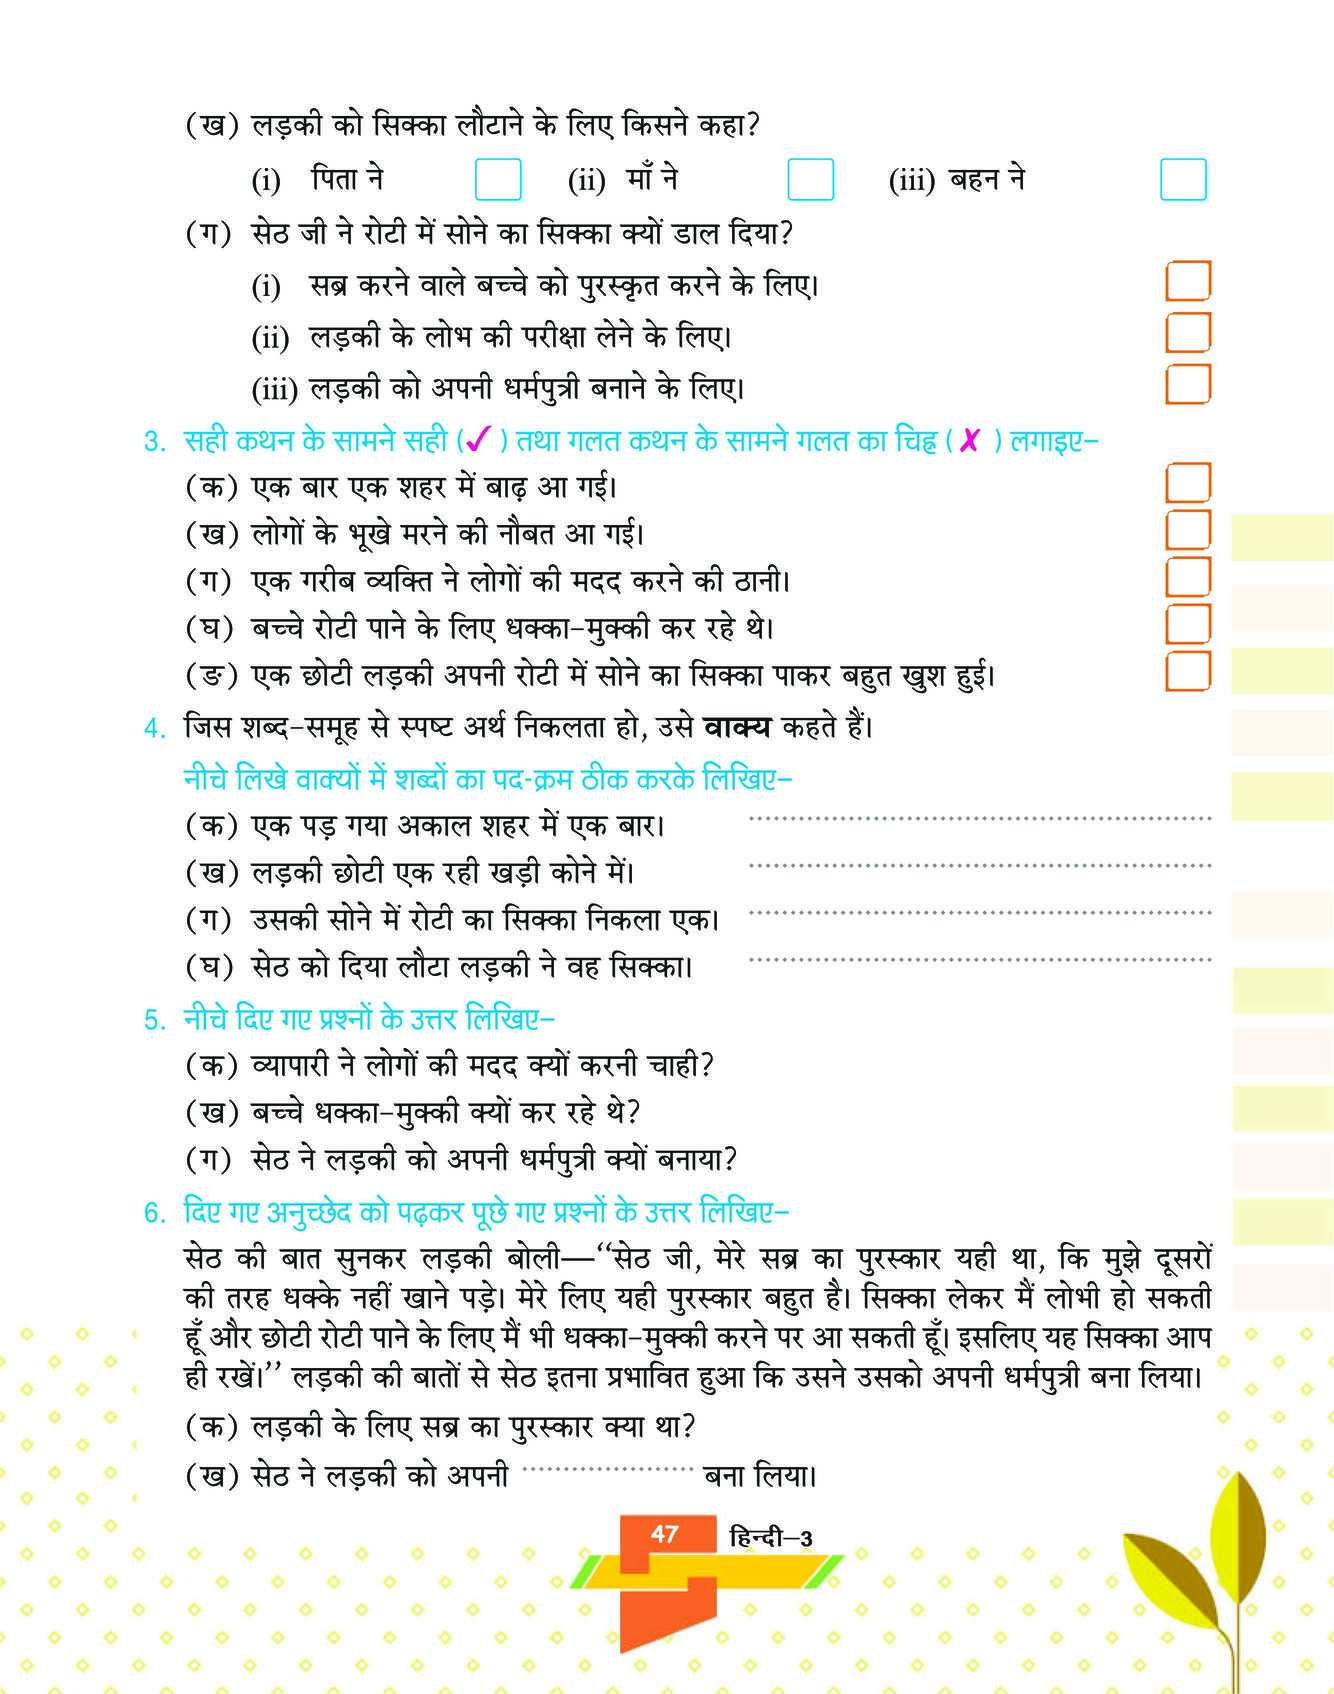 (ख) लड़की को सिक्का लौटाने के लिए किसने कहा?
(i) पिता ने (ii) माँ ने (iii) बहन ने
(ग) सेठ जी ने रोटी में सोने का सिक्का क्यों डाल दिया?
(i) सब्र करने वाले बच्चे को पुरस्कृत करने के लिए।
(ii) लड़की के लोभ की परीक्षा लेने के लिए।
(iii) लड़की को अपनी धर्मपुत्री बनाने के लिए।
3. सही कथन के सामने सही (✓) तथा गलत कथन के सामने गलत का चिह्न (✗) लगाइए–
(क) एक बार एक शहर में बाढ़ आ गई।
(ख) लोगों के भूखे मरने की नौबत आ गई।
(ग) एक गरीब व्यक्ति ने लोगों की मदद करने की ठानी।
(घ) बच्चे रोटी पाने के लिए धक्का-मुक्की कर रहे थे।
(ङ) एक छोटी लड़की अपनी रोटी में सोने का सिक्का पाकर बहुत खुश हुई।
4. जिस शब्द-समूह से स्पष्ट अर्थ निकलता हो, उसे वाक्य कहते हैं।
नीचे लिखे वाक्यों में शब्दों का पद-क्रम ठीक करके लिखिए–
(क) एक पड़ गया अकाल शहर में एक बार। ........................................................
(ख) लड़की छोटी एक रही खड़ी कोने में। ........................................................
(ग) उसकी सोने में रोटी का सिक्का निकला एक। ........................................................
(घ) सेठ को दिया लौटा लड़की ने वह सिक्का। ........................................................
5. नीचे दिए गए प्रश्नों के उत्तर लिखिए–
(क) व्यापारी ने लोगों की मदद क्यों करनी चाही?
(ख) बच्चे धक्का-मुक्की क्यों कर रहे थे?
(ग) सेठ ने लड़की को अपनी धर्मपुत्री क्यों बनाया?
6. दिए गए अनुच्छेद को पढ़कर पूछे गए प्रश्नों के उत्तर लिखिए–
सेठ की बात सुनकर लड़की बोली—‘‘सेठ जी, मेरे सब्र का पुरस्कार यही था, कि मुझे दूसरों
की तरह धक्के नहीं खाने पड़े। मेरे लिए यही पुरस्कार बहुत है। सिक्का लेकर मैं लोभी हो सकती
हूँ और छोटी रोटी पाने के लिए मैं भी धक्का-मुक्की करने पर आ सकती हूँ। इसलिए यह सिक्का आप
ही रखें।’’ लड़की की बातों से सेठ इतना प्रभावित हुआ कि उसने उसको अपनी धर्मपुत्री बना लिया।
(क) लड़की के लिए सब्र का पुरस्कार क्या था?
(ख) सेठ ने लड़की को अपनी ..................... बना लिया।
47 हिन्दी–3